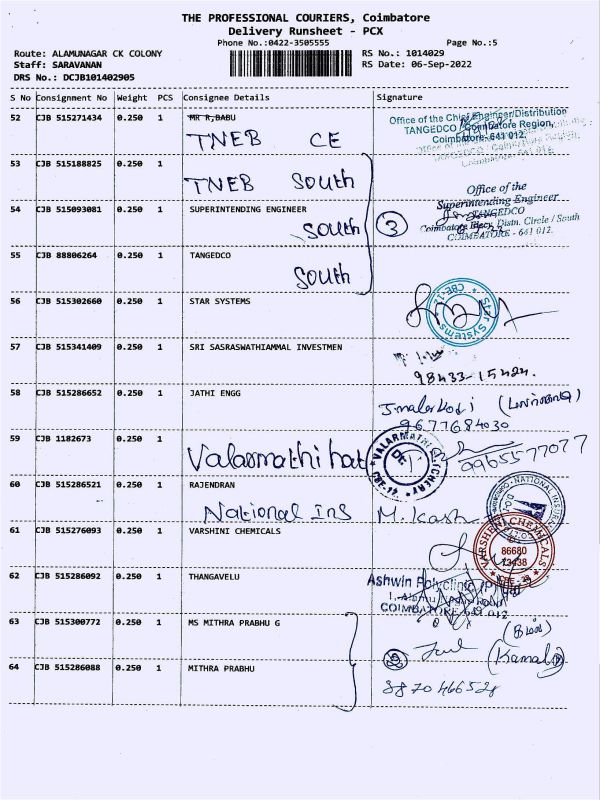 THE PROFESSIONAL COURIERS, Coimbatore
Delivery Runsheet - PCX
Phone No.:0422-3505555 Page No.:5
Route: ALAMUNAGAR CK COLONY RS No.: 1014029
Staff: SARAVANAN RS Date: 06-Sep-2022
DRS No.: DCJB101402905
S No Consignment No Weight PCS Consignee Details Signature
52 CJB 515271434 0.250 1 MR R,BABU
TNEB CE
Office of the Chief Engineer/Distribution
TANGEDCO / Coimbatore Region,
Coimbatore- 641 012.
53 CJB 515188825 0.250 1
TNEB South
Office of the
Superintending Engineer
TANGEDCO
Coimbatore Elecy. Distn. Circle / South
COIMBATORE - 641 012.
54 CJB 515093081 0.250 1 SUPERINTENDING ENGINEER
South
3
55 CJB 88806264 0.250 1 TANGEDCO
South
56 CJB 515302660 0.250 1 STAR SYSTEMS
Star Systems
CBE-12
57 CJB 515341409 0.250 1 SRI SASRASWATHIAMMAL INVESTMEN
98433-15424.
58 CJB 515286652 0.250 1 JATHI ENGG
9677684030
59 CJB 1182673 0.250 1
Valarmathi hat
VALARMATHI
9965577077
60 CJB 515286521 0.250 1 RAJENDRAN
National Ins M. Kash
NATIONAL
61 CJB 515276093 0.250 1 VARSHINI CHEMICALS
VARSHENI CHEMICALS
86680
13438
62 CJB 515286092 0.250 1 THANGAVELU
Ashwin Polyclinic
COIMBATORE 641 012
63 CJB 515300772 0.250 1 MS MITHRA PRABHU G
64 CJB 515286088 0.250 1 MITHRA PRABHU
(Kamal)
8870466528